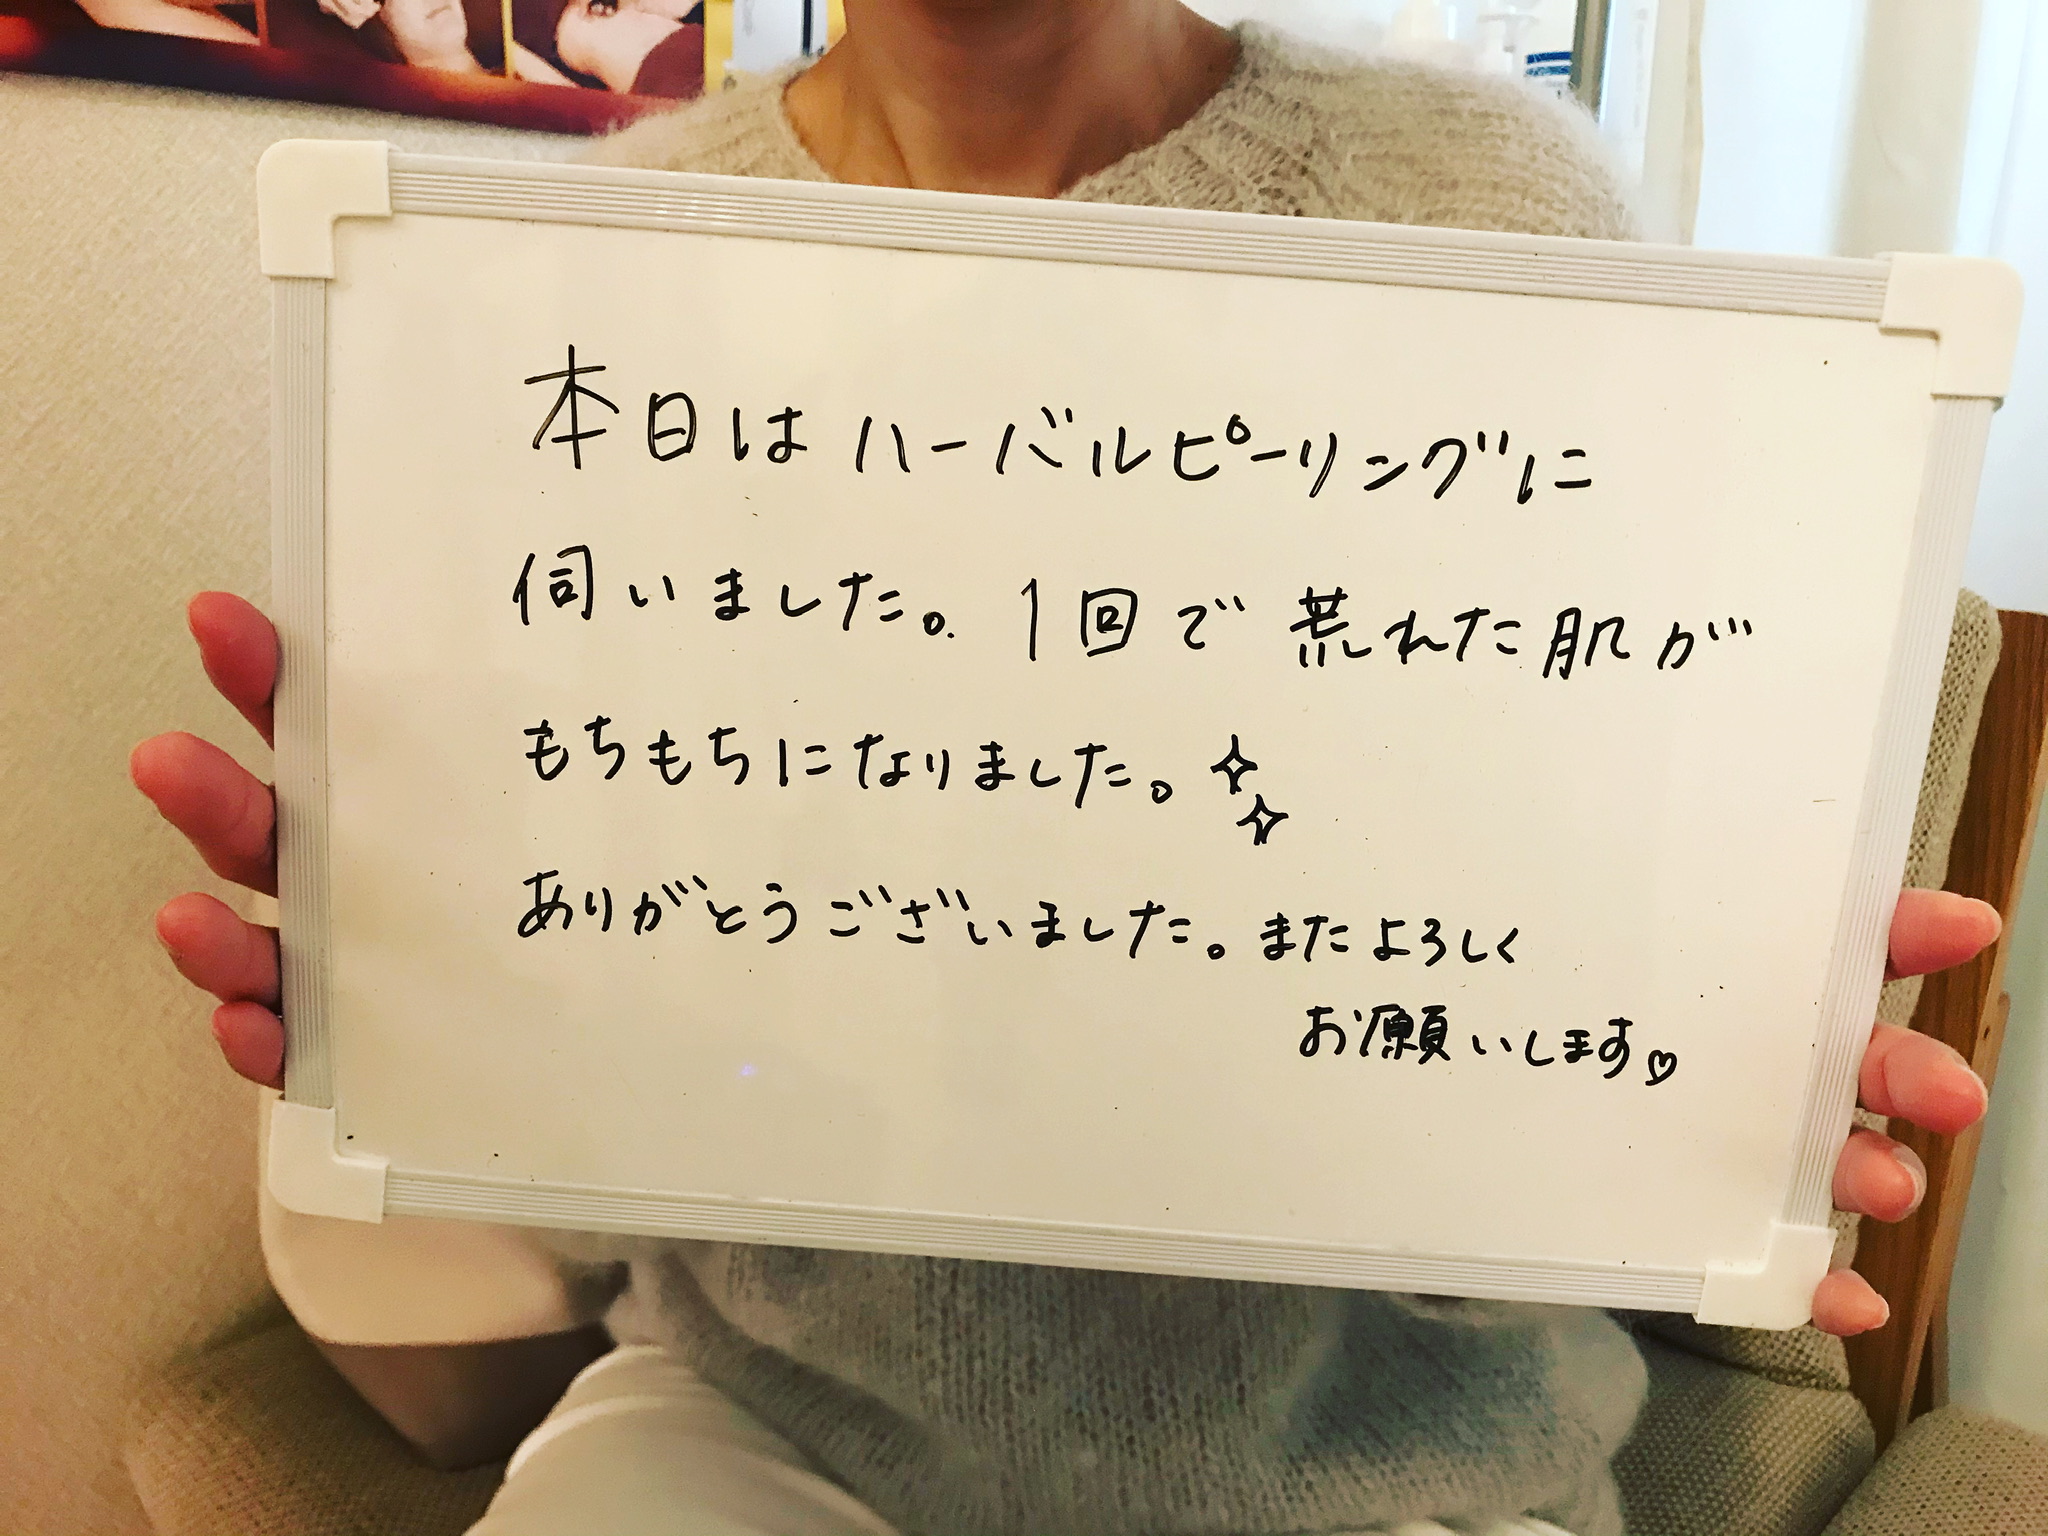 本日はハーバルピーリングに
伺いました。1回で荒れた肌が
もちもちになりました。✧✧
ありがとうございました。またよろしく
お願いします♡